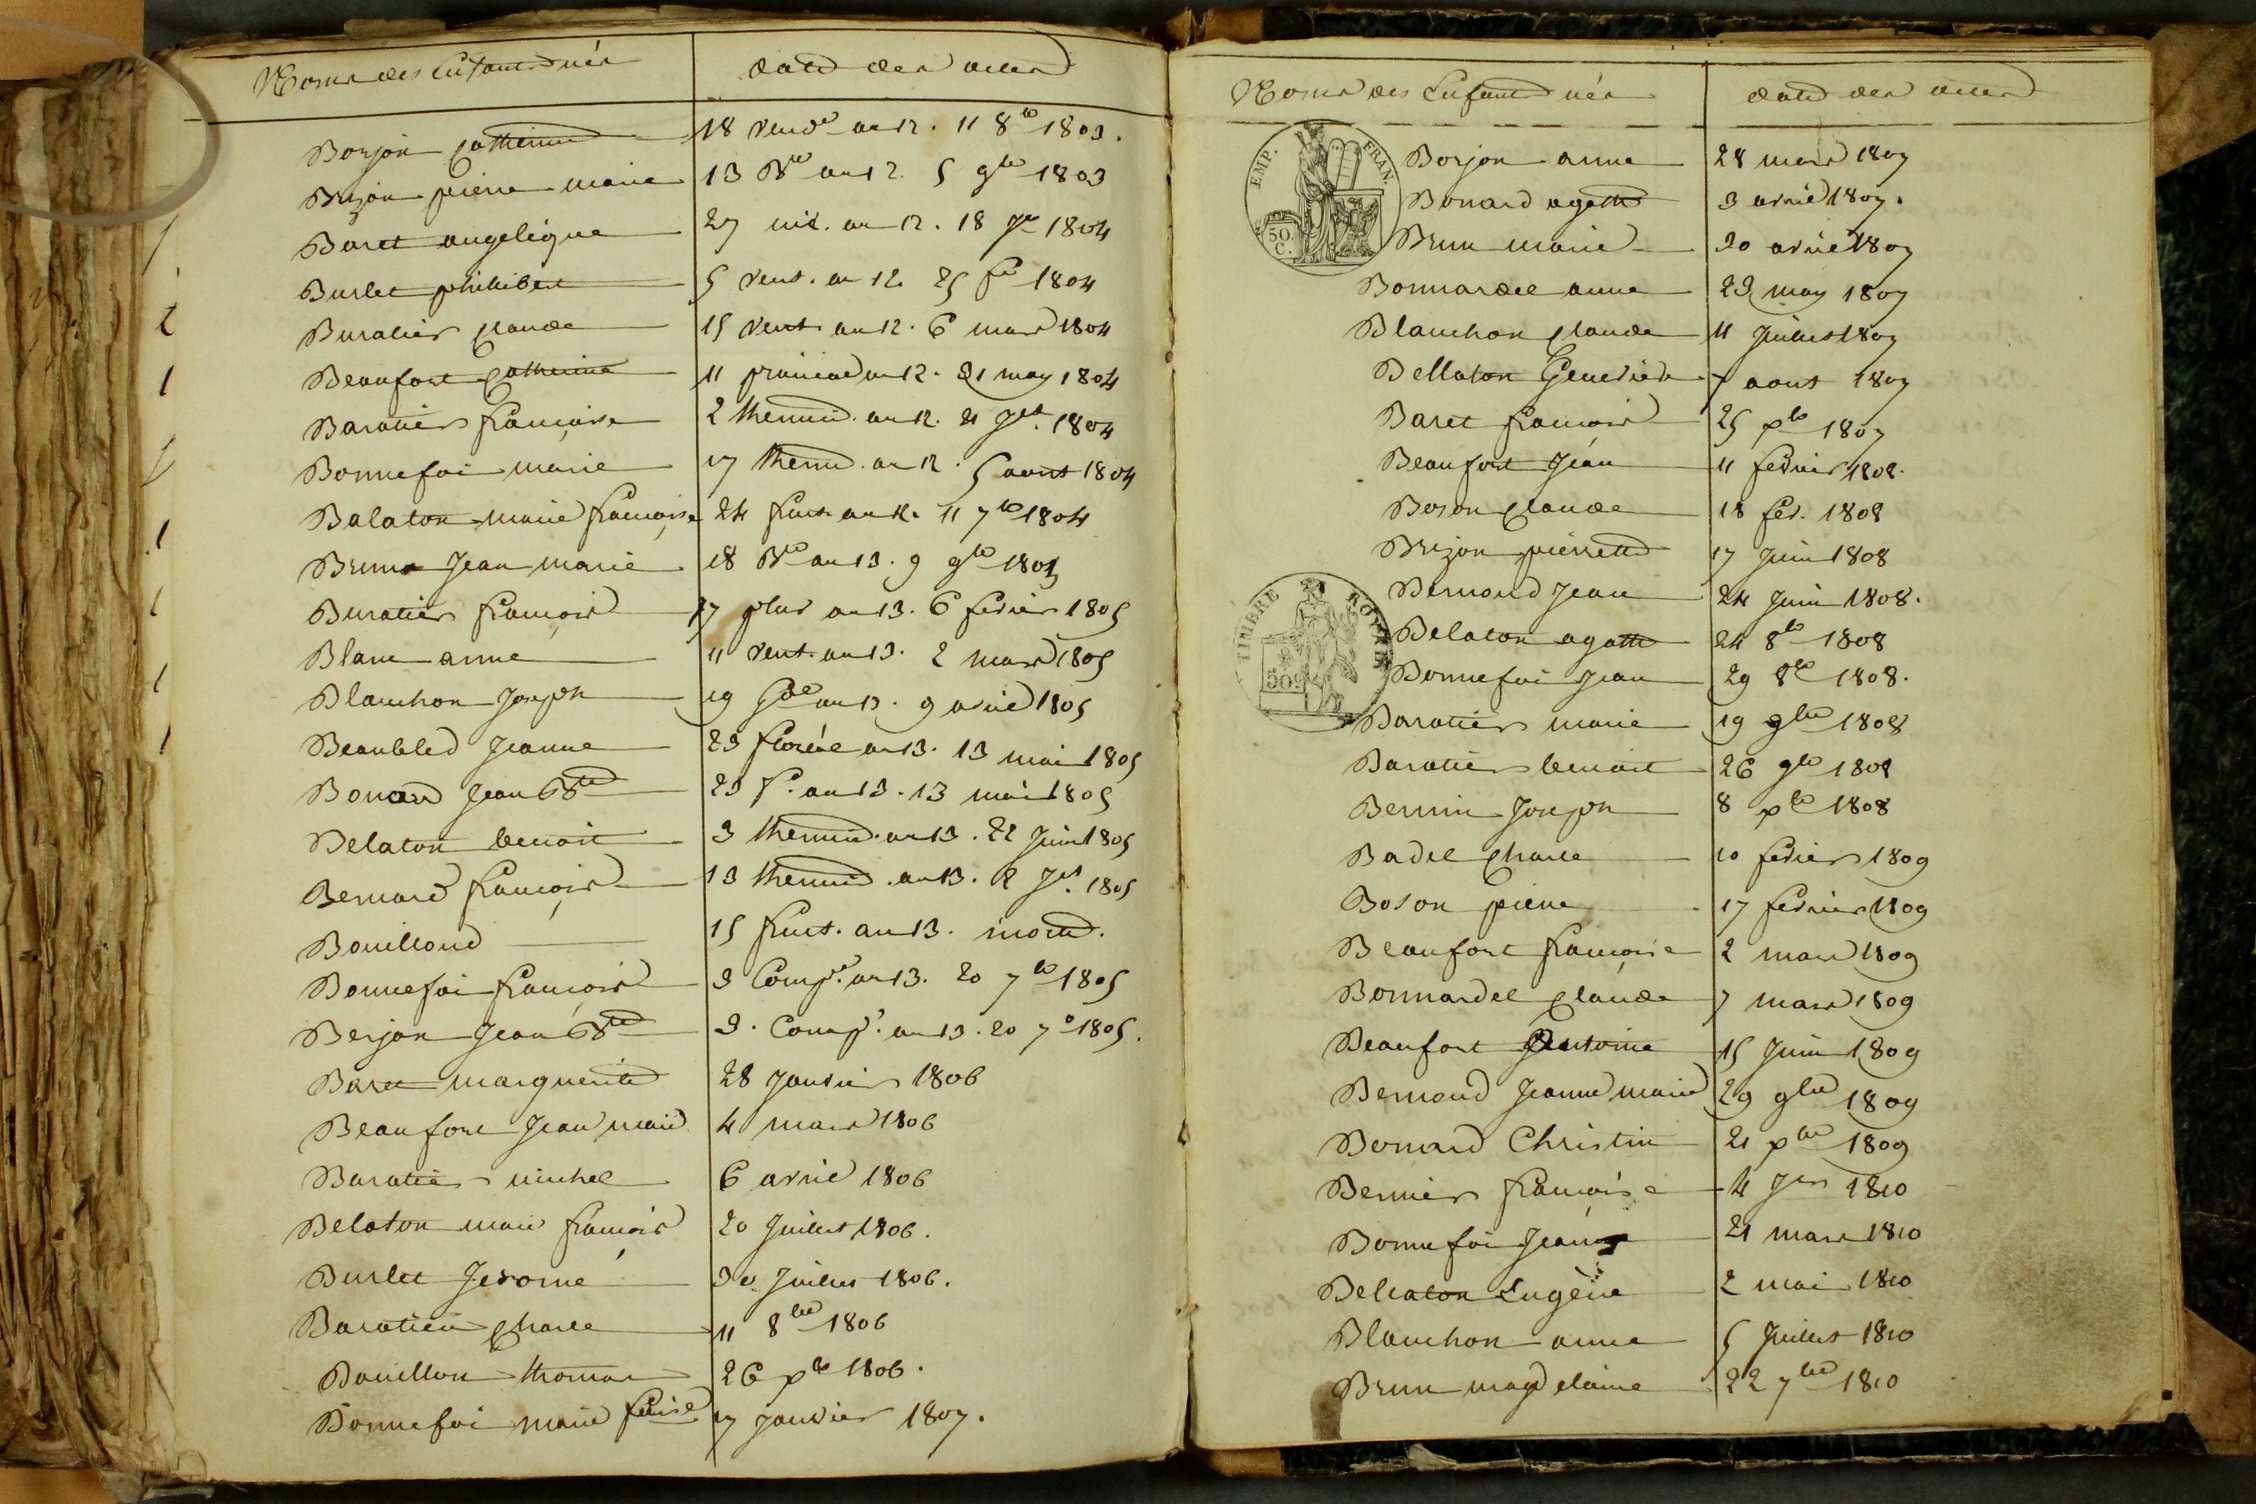 Noms des Enfants nés
date des actes
Borjon Catherine 18 vend.re an 12. 11 8bre 1803.
Brizon pierre marie 13 B.re an 12. 5 9bre 1803
Baret angelique 27 niv. an 12. 18 Jer 1804
Burlet philibert 5 vent. an 12. 25 fer 1804
Buratier Claude 15 vent. an 12. 6 mars 1804
Beaufort Catherine 11 prairial an 12. 31 may 1804
Baratier francoise 2 thermid. an 12. 21 Jet. 1804
Bonnefoi marie 17 therm. an 12. 5 aout 1804
Balaton marie francoise 24 fruct. an 12. 11 7bre 1804
Brun Jean marie 18 B.re an 13. 9 9bre 1804
Buratier francois 17 pluv. an 13. 6 fevrier 1805
Blanc anne 11 vent. an 13. 2 mars 1805
Blanchon Joseph 19 G.al an 13. 9 avril 1805
Beaubled Jeanne 23 floréal an 13. 13 mai 1805
Bonard Jean Bte 23 f.l an 13. 13 mai 1805
Delaton benoit 3 thermid. an 13. 22 Juin 1805
Bernard francois 13 thermid. an 13. 2 Jet. 1805
Bouilloud 15 fruct. an 13. mort.
Bonnefoi francois 3 Comp.re an 13. 20 7bre 1805
Berjon Jean Bte 3. Comp.re an 13. 20 7e 1805.
Baret marguerite 28 Janvier 1806
Beaufort Jean marie 4 mars 1806
Baratier michel 6 avril 1806
Belaton marie francois 20 Juillet 1806.
Burlet Jerome 30 Juillet 1806.
Baratier Charle 11 8bre 1806
Bouillon thomas 26 xbre 1806.
Bonnefoi marie fcoise 17 Janvier 1807.
Noms des Enfants nés
date des actes
EMP. FRAN.
50. C.
Borjon anne 28 mars 1807
Bonard agathe 3 avril 1807.
Brun marie 20 avril 1807
Bonnardel anne 23 may 1807
Blanchon Claude 11 Juillet 1807
Bellaton Genevieve 7 aout 1807
Baret francois 25 xbre 1807
Beaufort Jean 11 fevrier 1808.
Boson Claude 18 fev. 1808
Brizon pierrette 17 Juin 1808
TIMBRE ROYAL
50c
Bernard Jean 24 Juin 1808.
Belaton agathe 24 8bre 1808
Bonnefoi Jean 29 8bre 1808.
Baratier marie 19 9bre 1808
Baratier benoit 26 9bre 1808
Bernin Joseph 8 xbre 1808
Badel Charle 10 fevrier 1809
Boson pierre 17 fevrier 1809
Beaufort francoise 2 mars 1809
Bonnardel Claude 7 mars 1809
Beaufort Antoine 15 Juin 1809
Bernard Jeanne marie 29 9bre 1809
Bernard Christin 21 xbre 1809
Bernier francoise 4 Jer 1810
Bonnefoi Jean 21 mars 1810
Bellaton Eugène 2 mai 1810
Blanchon anne 5 Juillet 1810
Brun magdelaine 22 7bre 1810